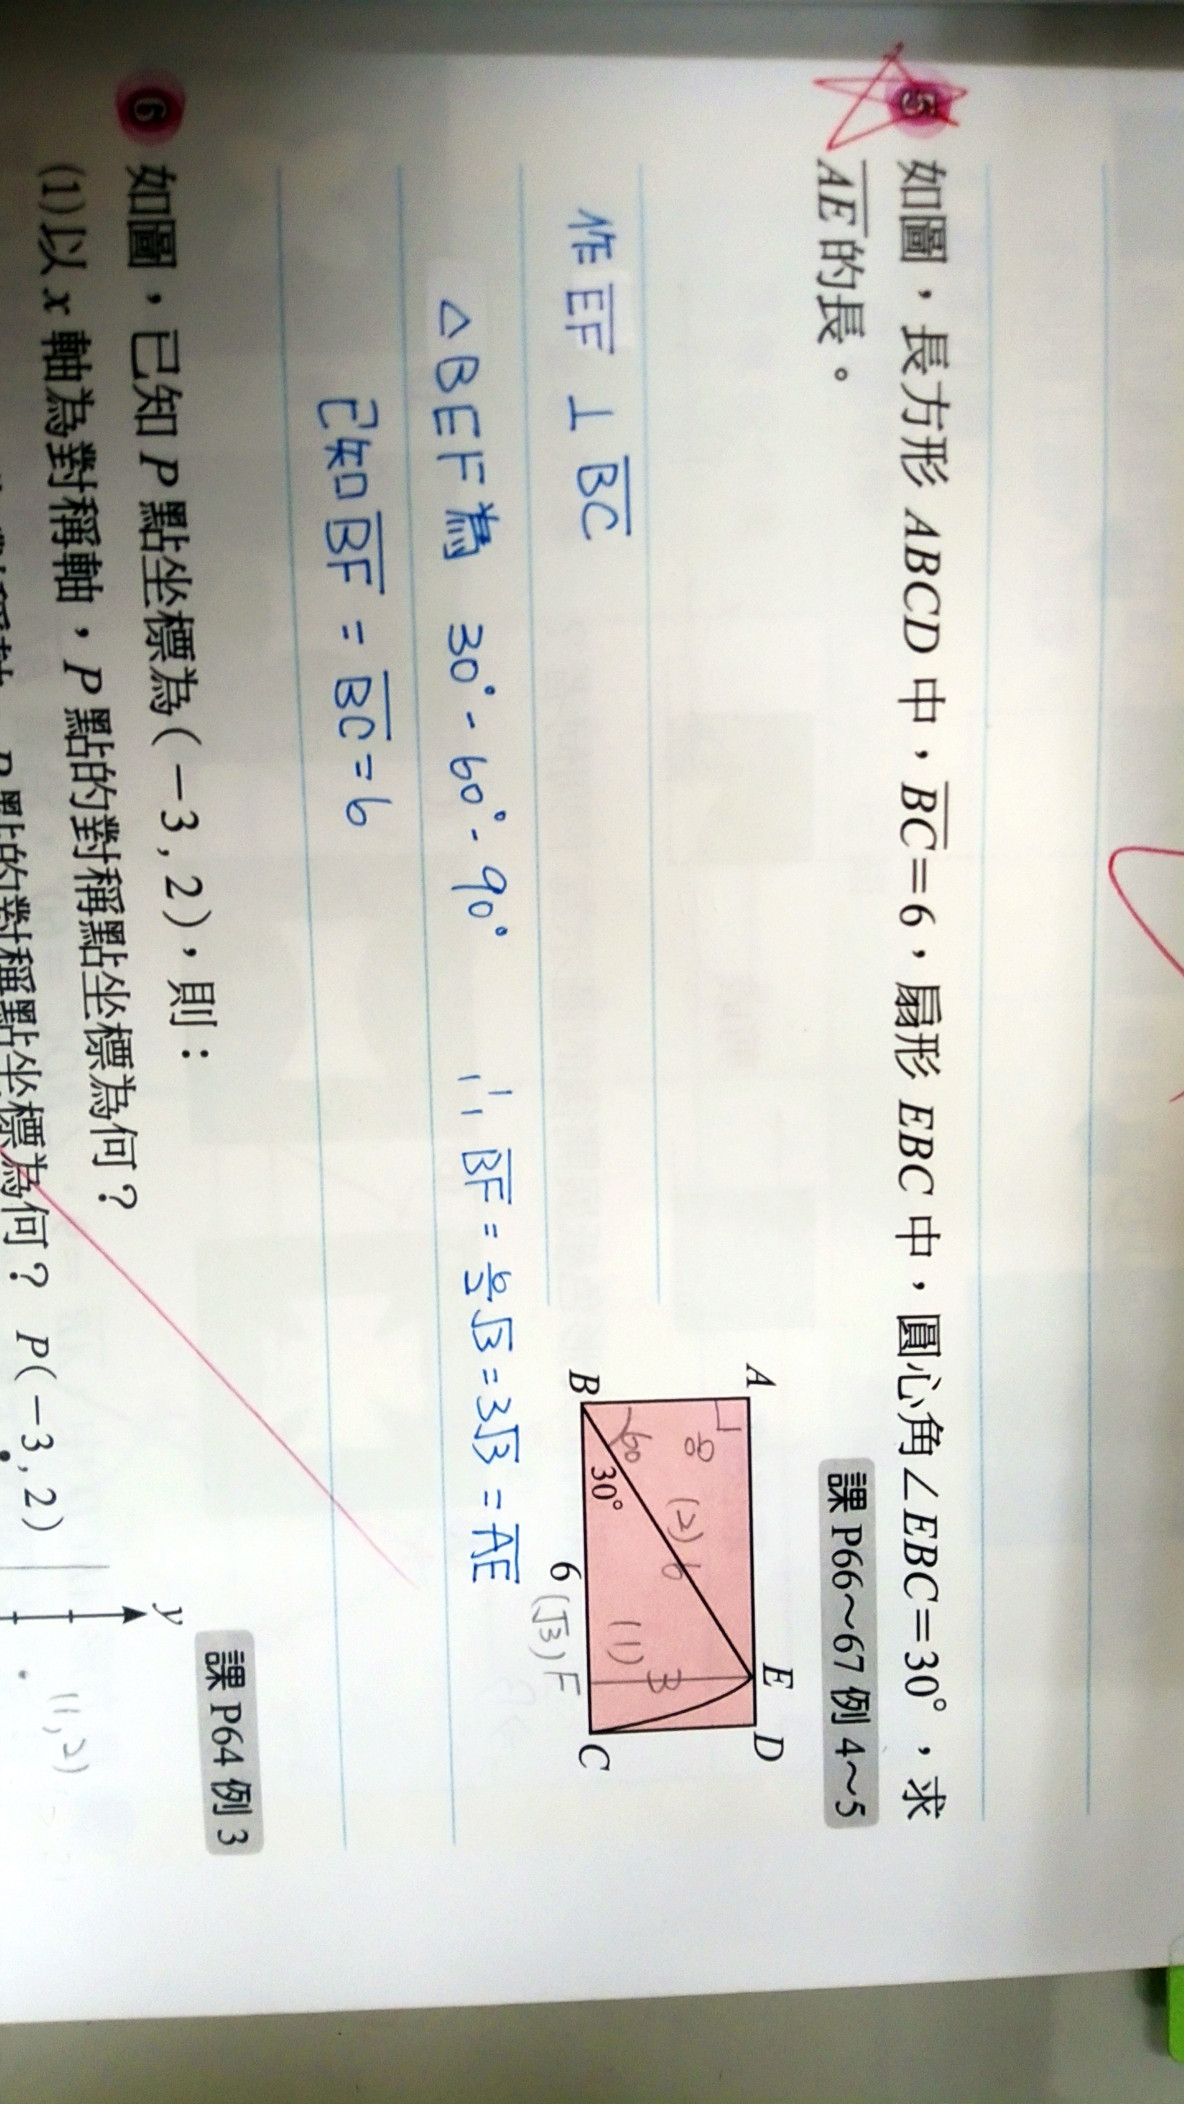 5 如圖，長方形 ABCD 中，BC=6，扇形 EBC 中，圓心角∠EBC=30°，求
AE 的長。
課 P66～67 例 4～5
作 EF ⊥ BC
△BEF 為 30°-60°-90°
∴ BF = 6/2 √3 = 3√3 = AE
已知 BF = BC = 6
A
E
D
90
(2) 6
60
30°
(1)
3
B
6
(√3)
F
C
6 如圖，已知 P 點坐標為(－3 , 2)，則：
課 P64 例 3
(1)以 x 軸為對稱軸，P 點的對稱點坐標為何？
y
(1,2)
P 點的對稱點坐標為何？
P(－3 , 2)